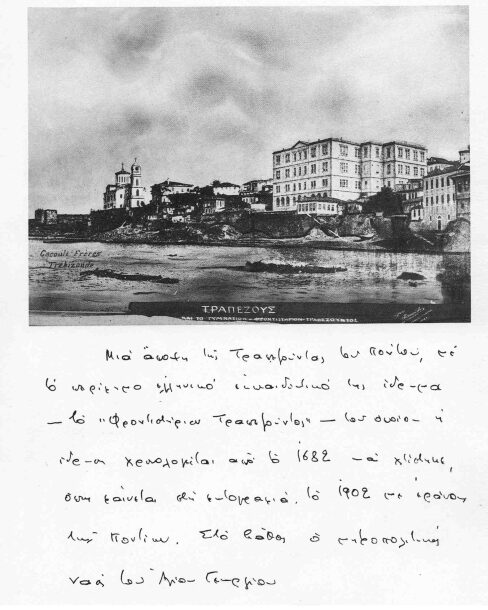 Cacouli Frères
Trébizonde
ΤΡΑΠΕΖΟΥΣ
ΚΑΙ ΤΟ ΓΥΜΝΑΣΙΟΝ - ΦΡΟΝΤΙΣΤΗΡΙΟΝ ΤΡΑΠΕΖΟΥΝΤΟΣ
Μιά ἄποψη τῆς Τραπεζούντας τοῦ Πόντου, μέ
τό περίφημο ἑλληνικό ἐκπαιδευτικό της ἵδρυμα
– τό "Φροντιστήριον Τραπεζοῦντος" – τοῦ ὁποίου ἡ
ἵδρυση χρονολογεῖται ἀπό τό 1682 καί χτίστηκε,
ὅπως φαίνεται στή φωτογραφία, τό 1902 με ἐράνους
τῶν Ποντίων. Στό βάθος ὁ μητροπολιτικός
ναός τοῦ Ἁγίου Γεωργίου